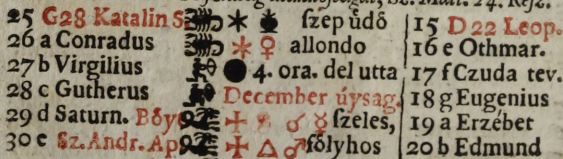 25 G28 Katalin S. ſzep ůdő 15 D 22 Leop.
26 a Conradus allondo 16 e Othmar.
27 b Virgilius 4. ora. del utta 17 f Czuda tev.
28 c Gutherus December úyſag. 18 g Eugenius
29 d Saturn. Bőy ſzeles, 19 a Erzébet
30 e Sz. Andr. Ap. főlyhos 20 b Edmund